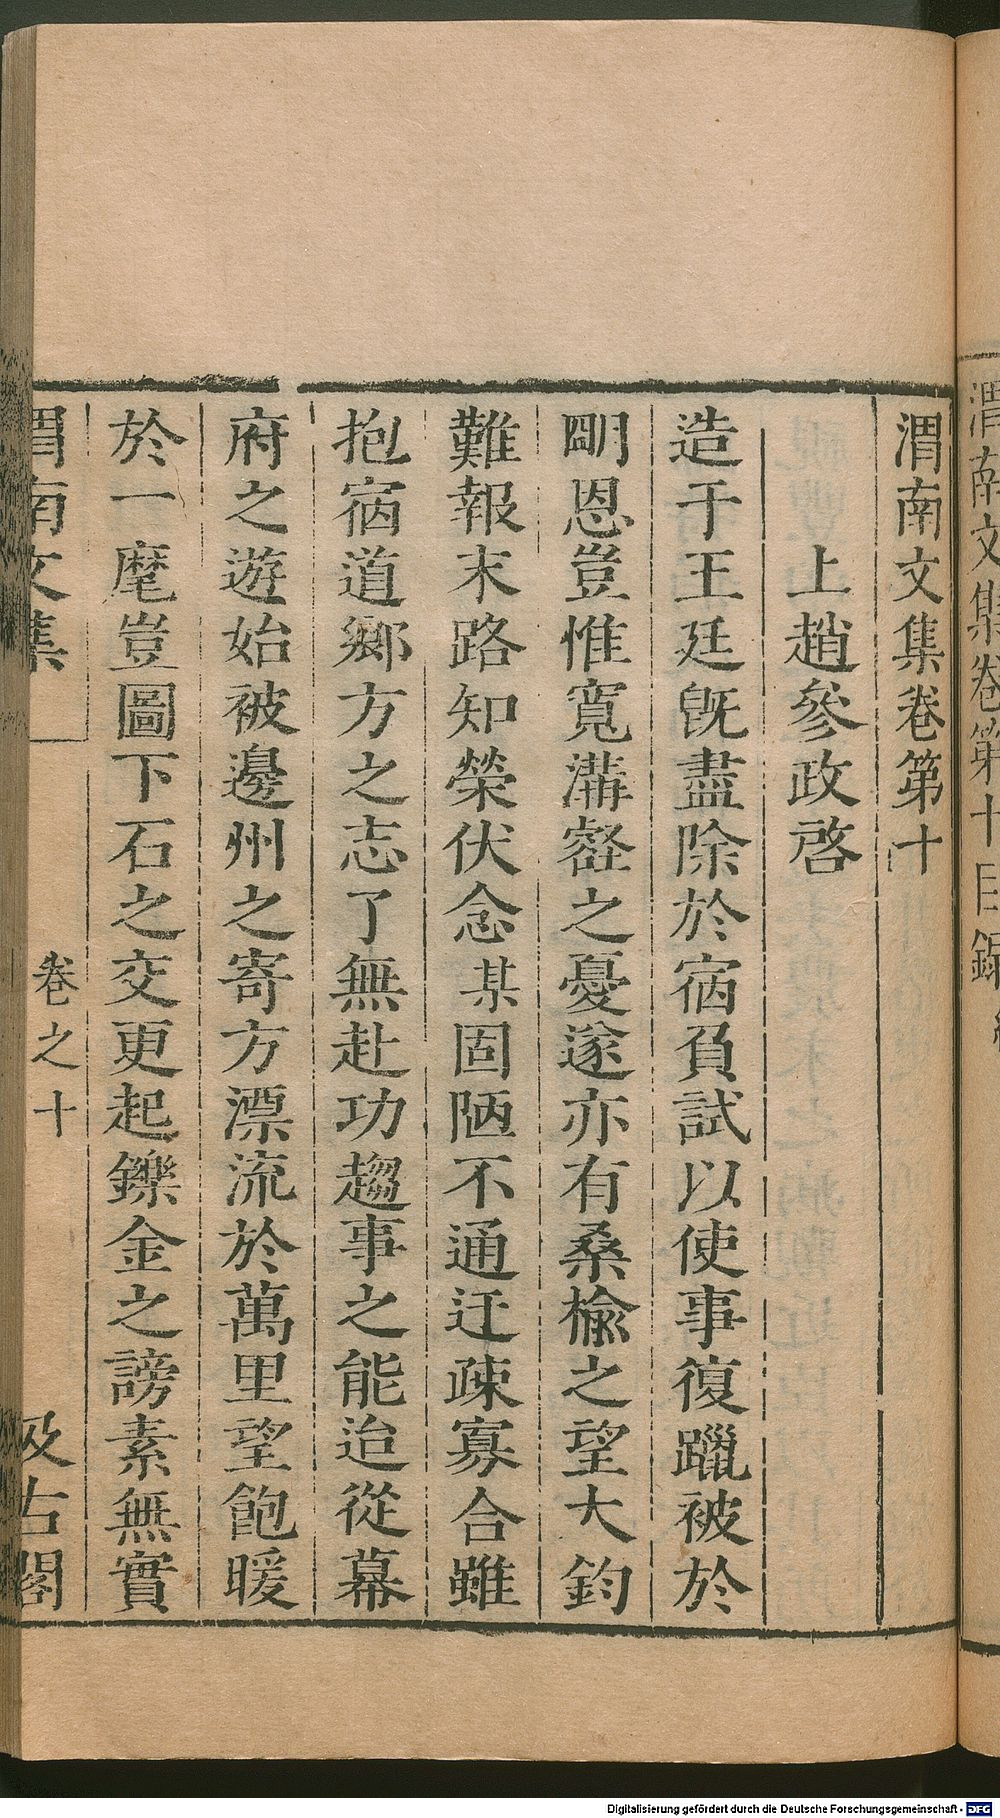 渭南文集卷第十
上趙參政啓
造于王廷旣盡除於宿負試以使事復躐被於
明恩豈惟寬溝壑之憂遂亦有桑榆之望大鈞
難報末路知榮伏念某固陋不通迂疎寡合雖
抱宿道鄉方之志了無赴功趨事之能迨從幕
府之遊始被邊州之寄方漂流於萬里望飽暖
於一麾豈圖下石之交更起鑠金之謗素無實
渭南文集 卷之十 汲古閣
渭南文集卷第十目錄
Digitalisierung gefördert durch die Deutsche Forschungsgemeinschaft - DFG